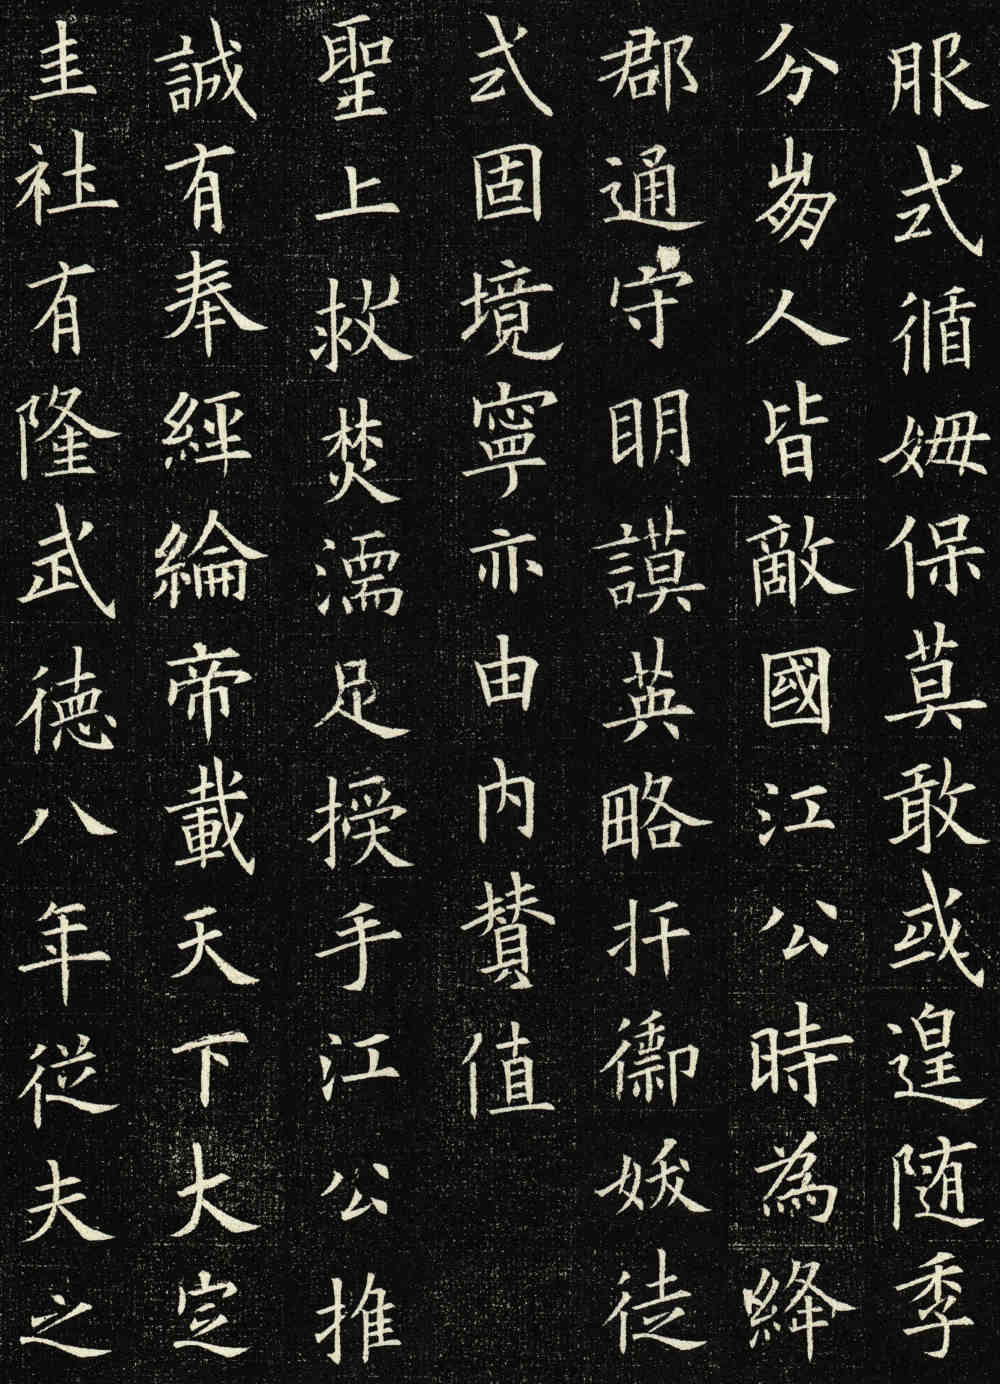 服式循姆保莫敢或遑随季
分崩人皆敵國江公時為絳
郡通守眀謨英略扞禦徒
式固境寧亦由内贊值
聖上救焚濡足授手江公推
誠有奉經綸帝載天下大定
圭社有隆武德八年従夫之